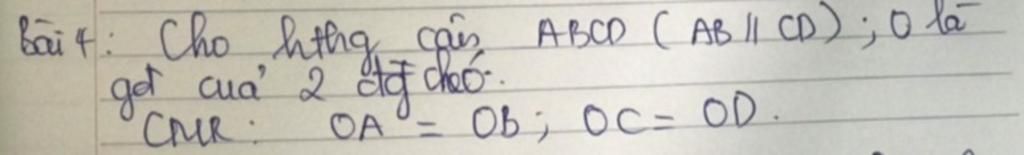 Bài 4: Cho hthg cân ABCD (AB // CD); O là
gđ của 2 đg chéo.
CMR: OA = OB; OC = OD.